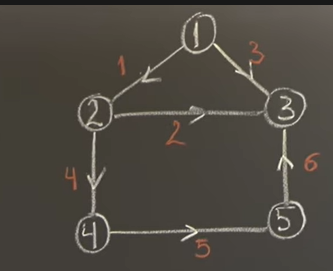 1
1 3
2 3
2
4 6
4 5
5